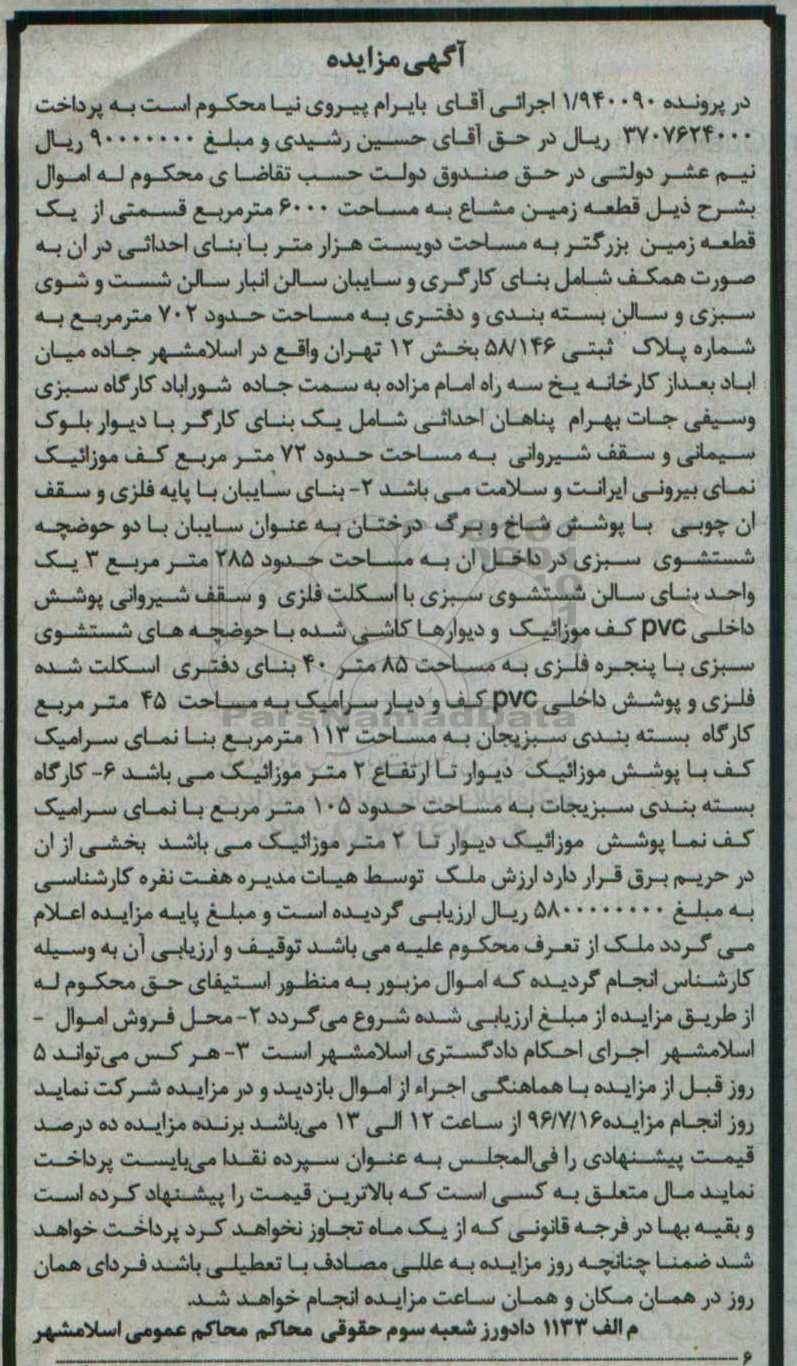 آگهی مزایده
در پرونده ۱/۹۴۰۰۹۰ اجرائی آقای بایرام پیروی نیا محکوم است به پرداخت
۳۷۰۷۶۲۴۰۰۰ ریال در حق آقای حسین رشیدی و مبلغ ۹۰۰۰۰۰۰۰ ریال
نیم عشر دولتی در حق صندوق دولت حسب تقاضا ی محکوم له اموال
بشرح ذیل قطعه زمین مشاع به مساحت ۶۰۰۰ مترمربع قسمتی از یک
قطعه زمین بزرگتر به مساحت دویست هزار متر با بنای احداثی در ان به
صورت همکف شامل بنای کارگری و سایبان سالن انبار سالن شست و شوی
سبزی و سالن بسته بندی و دفتری به مساحت حدود ۷۰۲ مترمربع به
شماره پلاک ثبتی ۵۸/۱۴۶ بخش ۱۲ تهران واقع در اسلامشهر جاده میان
اباد بعداز کارخانه یخ سه راه امام مزاده به سمت جاده شوراباد کارگاه سبزی
وسیفی جات بهرام پناهان احداثی شامل یک بنای کارگر با دیوار بلوک
سیمانی و سقف شیروانی به مساحت حدود ۷۲ متر مربع کف موزائیک
نمای بیرونی ایرانت و سلامت می باشد ۲- بنای سایبان با پایه فلزی و سقف
ان چوبی با پوشش شاخ و برگ درختان به عنوان سایبان با دو حوضچه
شستشوی سبزی در داخل ان به مساحت حدود ۲۸۵ متر مربع ۳ یک
واحد بنای سالن شستشوی سبزی با اسکلت فلزی و سقف شیروانی پوشش
داخلی pvc کف موزائیک و دیوارها کاشی شده با حوضچه های شستشوی
سبزی با پنجره فلزی به مساحت ۸۵ متر ۴۰ بنای دفتری اسکلت شده
فلزی و پوشش داخلی pvc کف و دیار سرامیک به مساحت ۴۵ متر مربع
کارگاه بسته بندی سبزیجان به مساحت ۱۱۳ مترمربع بنا نمای سرامیک
کف با پوشش موزائیک دیوار تا ارتفاع ۲ متر موزائیک می باشد ۶- کارگاه
بسته بندی سبزیجات به مساحت حدود ۱۰۵ متر مربع با نمای سرامیک
کف نما پوشش موزائیک دیوار تا ۲ متر موزائیک می باشد بخشی از ان
در حریم برق قرار دارد ارزش ملک توسط هیات مدیره هفت نفره کارشناسی
به مبلغ ۵۸۰۰۰۰۰۰۰۰۰ ریال ارزیابی گردیده است و مبلغ پایه مزایده اعلام
می گردد ملک از تعرف محکوم علیه می باشد توقیف و ارزیابی آن به وسیله
کارشناس انجام گردیده که اموال مزبور به منظور استیفای حق محکوم له
از طریق مزایده از مبلغ ارزیابی شده شروع می‌گردد ۲- محل فروش اموال -
اسلامشهر اجرای احکام دادگستری اسلامشهر است ۳- هر کس می‌تواند ۵
روز قبل از مزایده با هماهنگی اجراء از اموال بازدید و در مزایده شرکت نماید
روز انجام مزایده ۹۶/۷/۱۶ از ساعت ۱۲ الی ۱۳ می‌باشد برنده مزایده ده درصد
قیمت پیشنهادی را فی‌المجلس به عنوان سپرده نقدا می‌بایست پرداخت
نماید مال متعلق به کسی است که بالاترین قیمت را پیشنهاد کرده است
و بقیه بها در فرجه قانونی که از یک ماه تجاوز نخواهد کرد پرداخت خواهد
شد ضمنا چنانچه روز مزایده به عللی مصادف با تعطیلی باشد فردای همان
روز در همان مکان و همان ساعت مزایده انجام خواهد شد.
م الف ۱۱۳۳ دادورز شعبه سوم حقوقی محاکم محاکم عمومی اسلامشهر
۶
ParsNamadData